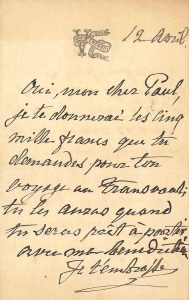 12 Avril
Oui, mon cher Paul,
je te donnerai les cinq
mille francs que tu
demandes pour ton
voyage au Transvaal
tu les auras quand
tu seras prêt à partir
avec ma bénédiction
Je t'embrasse